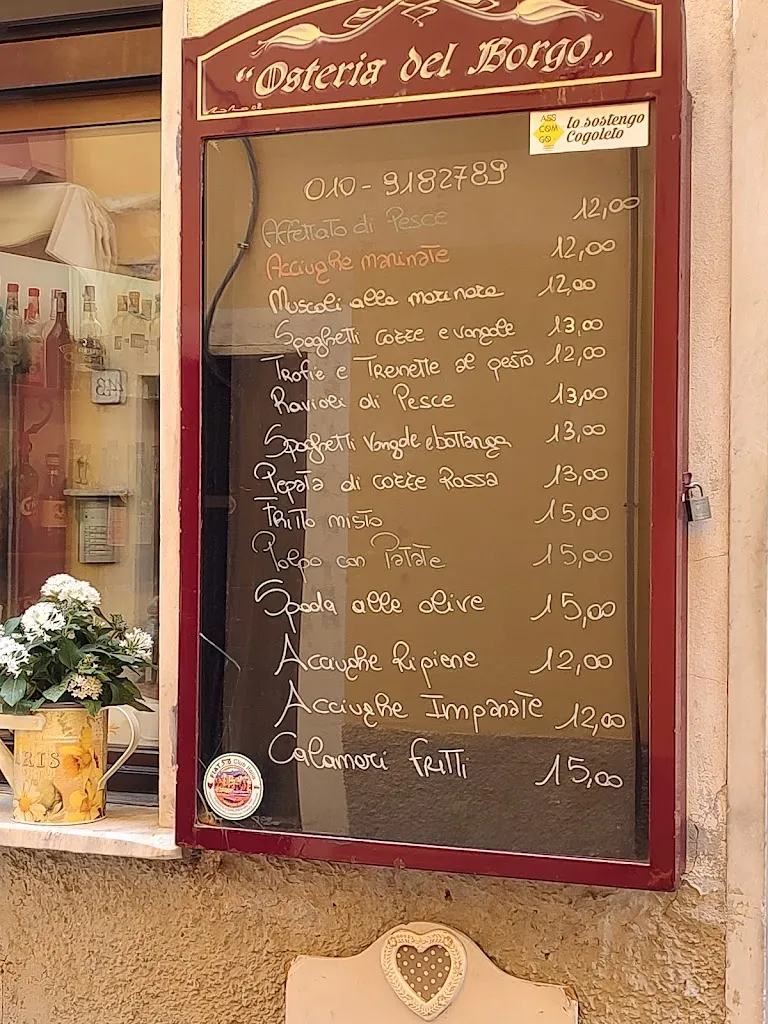 "Osteria del Borgo"
ASS
COM
GO
Io sostengo
Cogoleto
010 - 9182789
Affettato di Pesce 12,00
Acciughe marinate 12,00
Muscoli alla marinara 12,00
Spaghetti cozze e vongole 13,00
Trofie e Trenette al pesto 12,00
Ravioli di Pesce 13,00
Spaghetti vongole e bottarga 13,00
Pepata di cozze Rossa 13,00
Fritto misto 15,00
Polpo con Patate 15,00
Spada alle olive 15,00
Acciughe Ripiene 12,00
Acciughe Impanate 12,00
Calamari fritti 15,00
RIS